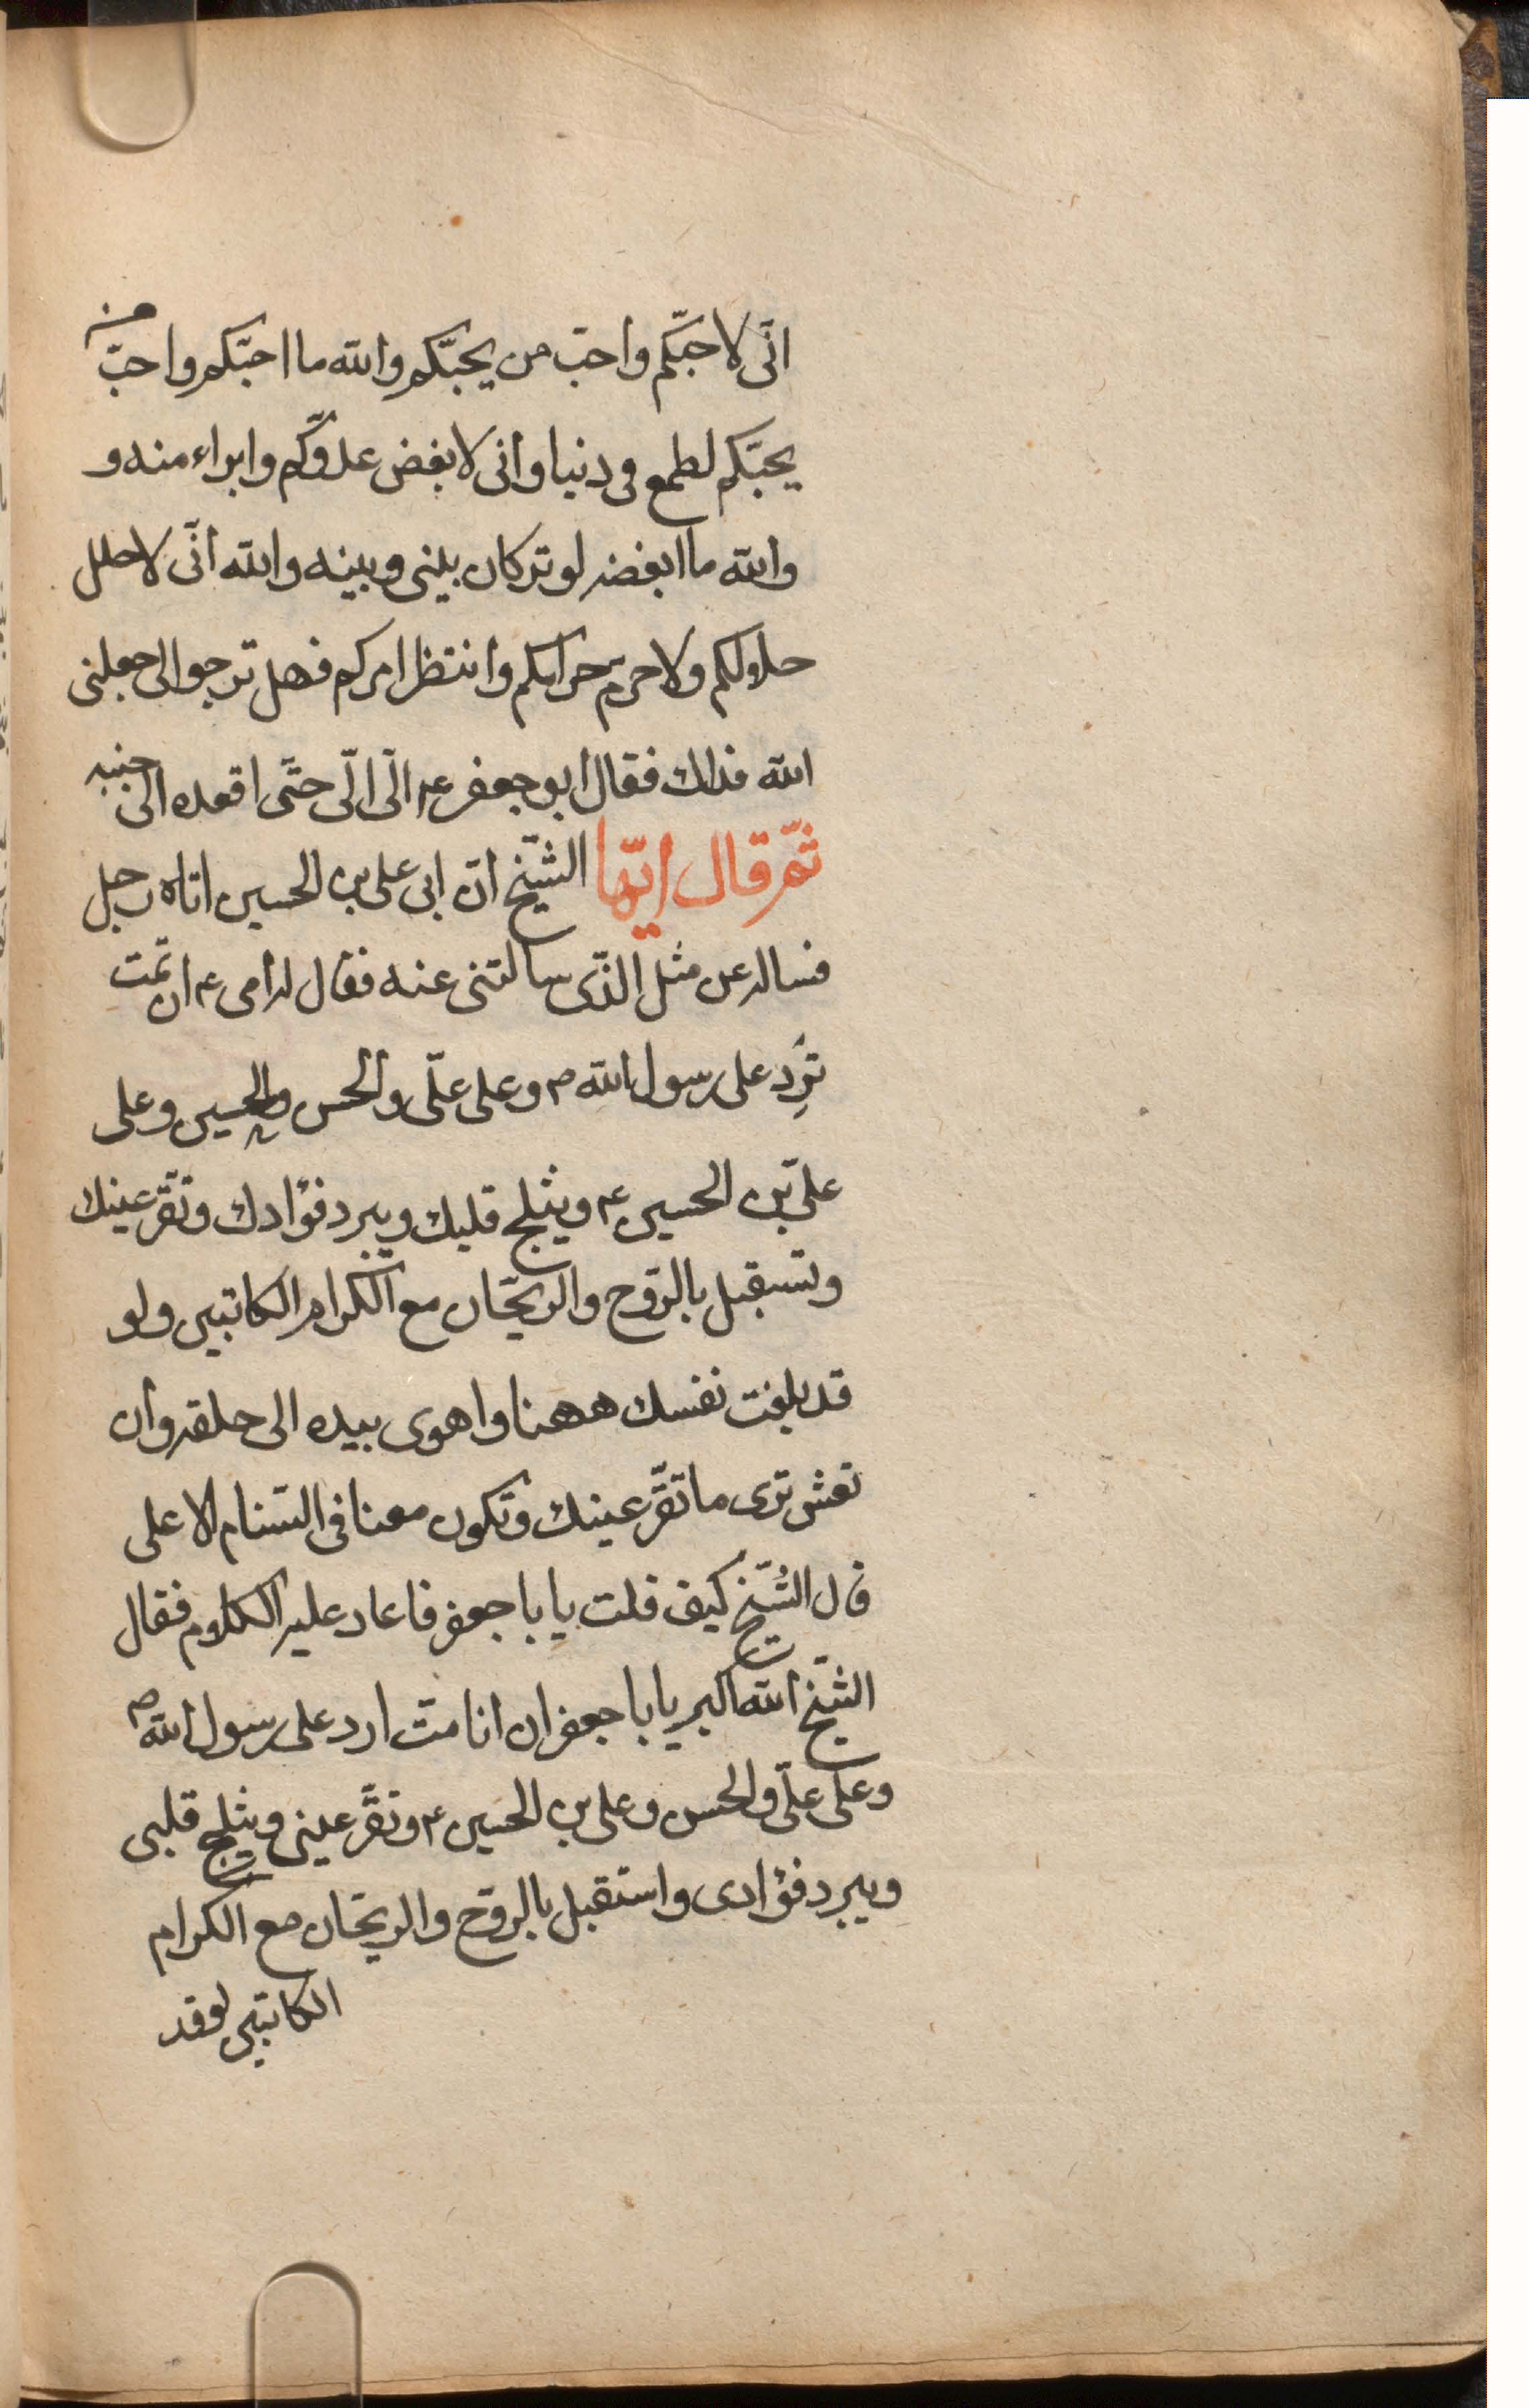 انّى لاحبّكم واحبّ من يحبّكم والله ما احبّكم واحبّ من
يحبّكم لطمع فى دنيا وانى لابغض عدوّكم وابراء منه و
والله ما ابغضه لوتر كان بينى وبينه والله انّى لاحلل
حلالكم ولاحرم حرامكم وانتظر امركم فهل ترجوا لى جعلنى
الله فداك فقال ابو جعفر ع الّى الّى حتّى اقعده الى جنبه
ثمّ قال ايّها الشّيخ انّ ابى على بن الحسين اتاه رجل
فساله عن مثل الذّى سالتنى عنه فقال له ابى ع ان تمت
ترِد على رسول الله ص وعلى علّى والحسن والحسين وعلى
علىّ بن الحسين ع ويثلج قلبك ويبرد فؤادك وتقرّ عينك
وتستقبل بالرّوح والريحّان مع الكرام الكاتبين ولو
قد بلغت نفسك ههنا واهوى بيده الى حلقه وان
تعش ترى ما تقرّ عينك وتكون معنا فى السّنام الاعلى
قال الشّيخ كيف قلت يا با جعفر فاعاد عليه الكلام فقال
الشّيخ الله اكبر يا با جعفر ان انا متّ ارد على رسول الله ص
وعلى علىّ والحسن وعلى بن الحسين ع وتقرّ عينى ويثلج قلبى
ويبرد فؤادى واستقبل بالرّوح والريحّان مع الكرام
الكاتبين لو قد